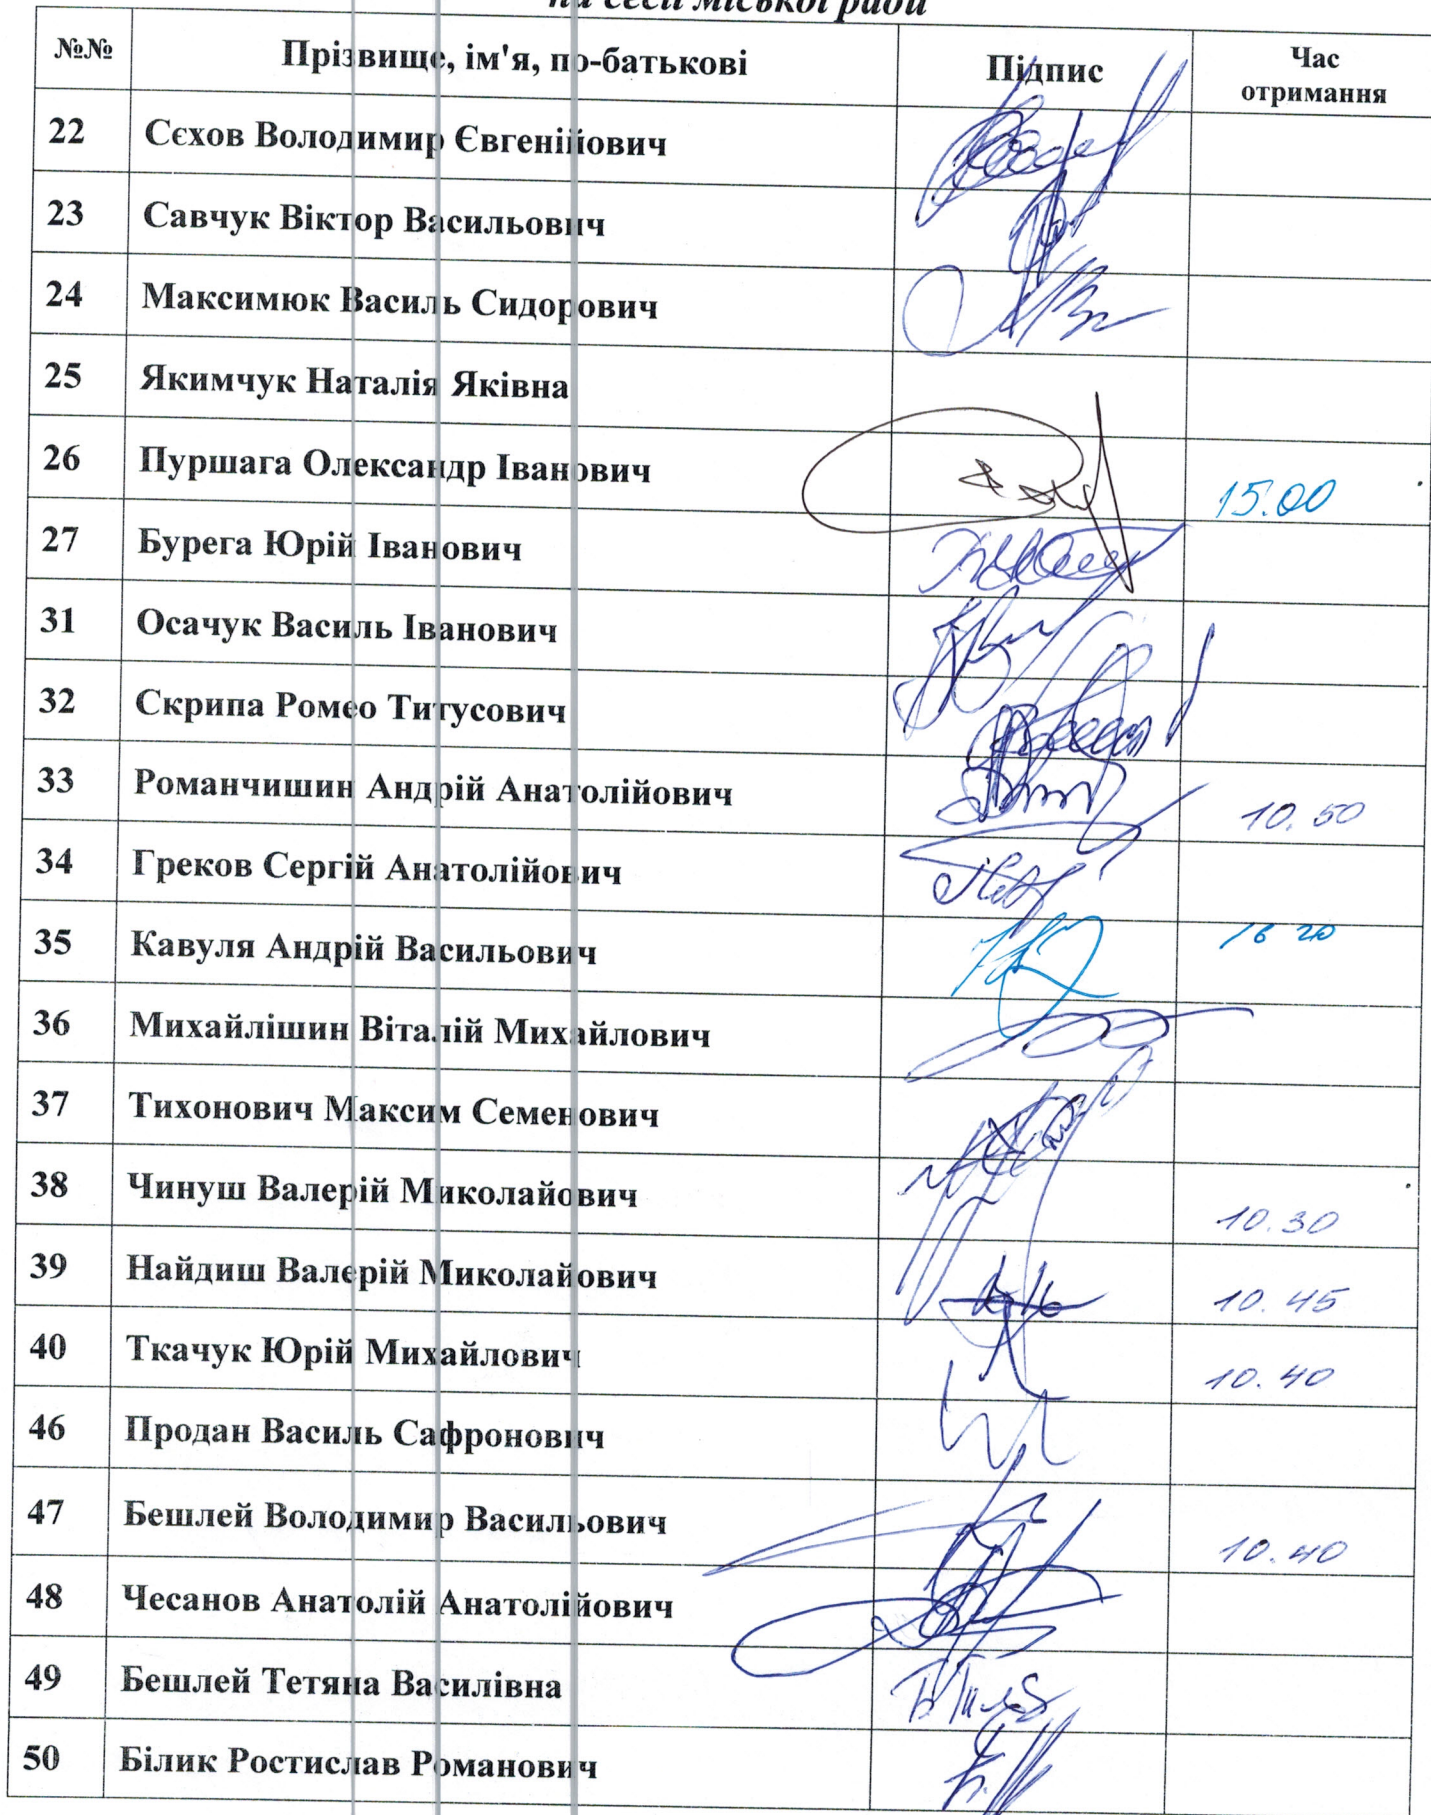 на сесії міської ради
№№ Прізвище, ім'я, по-батькові Підпис Час отримання
22 Сєхов Володимир Євгенійович
23 Савчук Віктор Васильович
24 Максимюк Василь Сидорович
25 Якимчук Наталія Яківна
26 Пуршага Олександр Іванович 15.00
27 Бурега Юрій Іванович
31 Осачук Василь Іванович
32 Скрипа Ромео Титусович
33 Романчишин Андрій Анатолійович 10.50
34 Греков Сергій Анатолійович
35 Кавуля Андрій Васильович 16 20
36 Михайлішин Віталій Михайлович
37 Тихонович Максим Семенович
38 Чинуш Валерій Миколайович 10.30
39 Найдиш Валерій Миколайович 10.45
40 Ткачук Юрій Михайлович 10.40
46 Продан Василь Сафронович
47 Бешлей Володимир Васильович 10.40
48 Чесанов Анатолій Анатолійович
49 Бешлей Тетяна Василівна
50 Білик Ростислав Романович